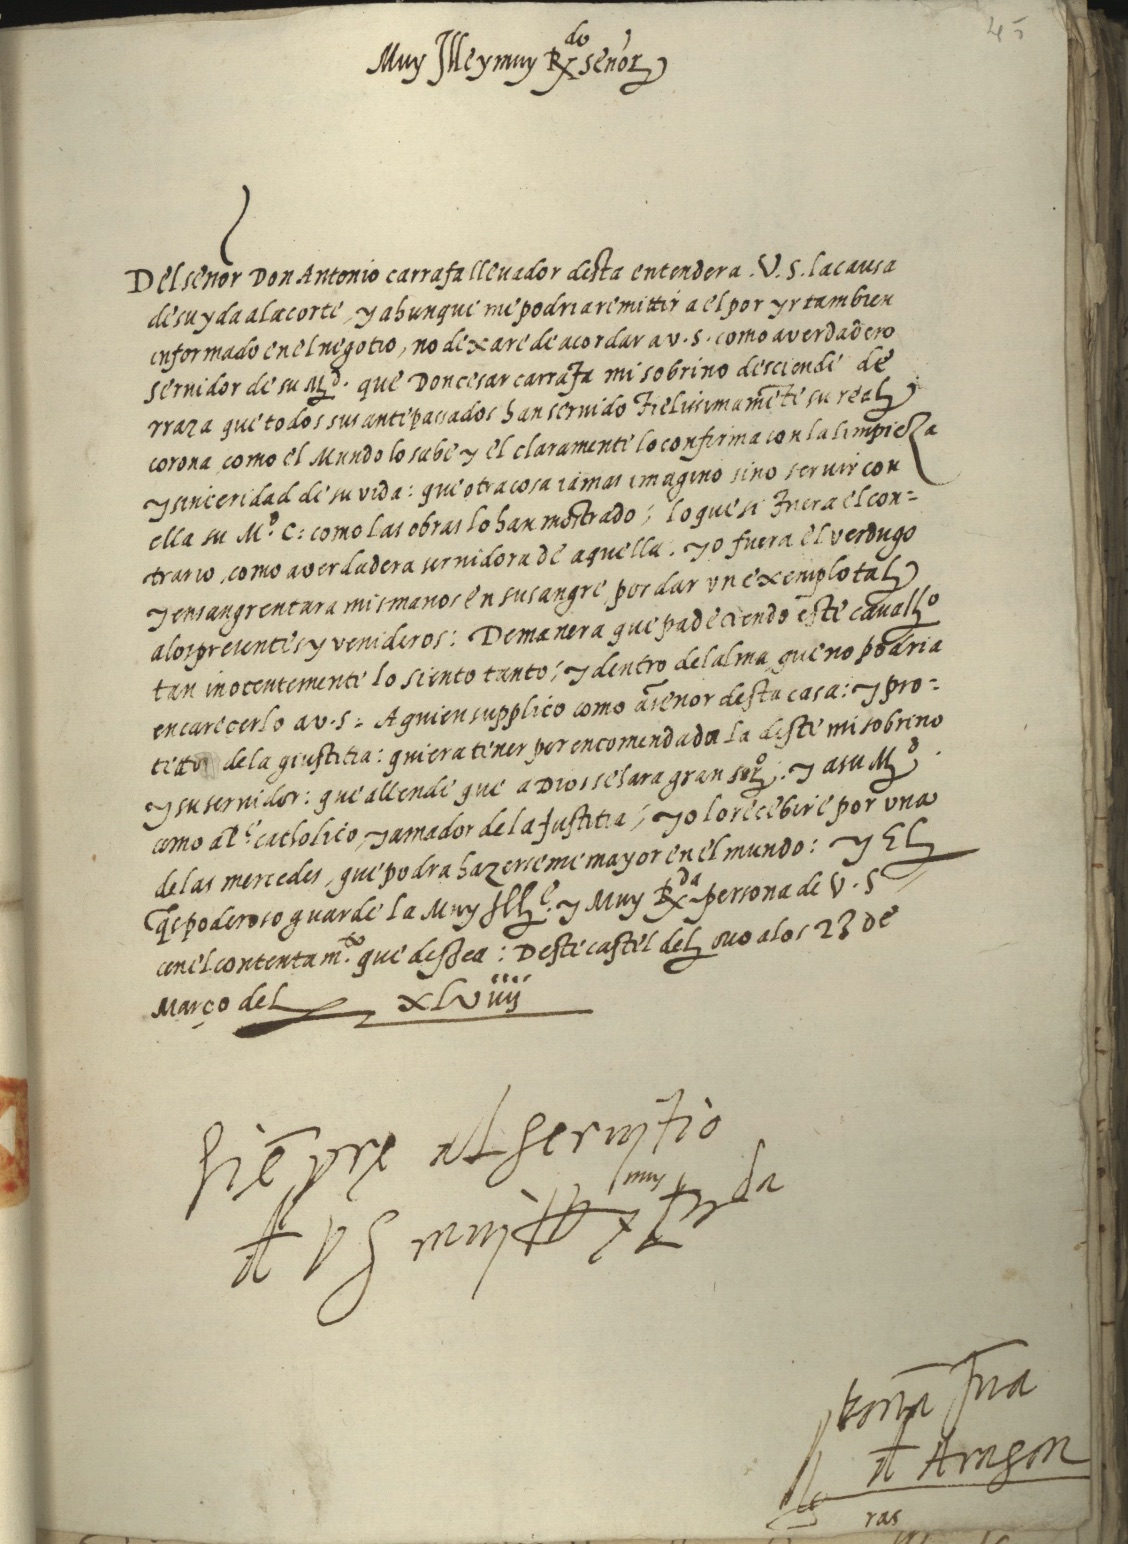 45
Muy Ille y muy Rdo señor
Del señor Don Antonio carrafa lleuador desta entendera .V.S. la causa
de su yda a la corte, y ahunque me podria remittir a el por yr tambien
informado en el negotio, no dexare de acordar a v.s. como a verdadero
seruidor de su Md. que Don cesar carrafa mi sobrino desciende de
rraza que todos sus antepassados han seruido fielissimamēte su real
corona, como el Mundo lo sabe y el claramente lo confirma con la limpieza
y sinceridad de su vida: que otra cosa iamas imagino sino seruir con
ella su Md. C: como las obras lo han mostrado; lo que si fuera el con=
trario, como a verdadera seruidora de aquella. yo fuera el verdugo
y ensangrentara mis manos en su sangre, por dar vn exemplo tal
a los presentes y venideros: De manera que padeciendo este cauallo
tan inocentemente lo siento tanto; y dentro del alma, que no podria
encarecerlo a v.s: A quien supplico como a señor desta casa: y pro=
tector de la giustitia: quiera tener por encomendado la deste mi sobrino
y su seruidor: que allende que a Dios se hara gran sero. y a su Md.
como a Pe catholico, y amador de la Justitia; yo lo recebire por vna
de las mercedes, que podra hazerseme mayor en el mundo: y El
qe poderoso guarde la Muy Ille. y Muy Rda persona de V.S
con el contentamto. que dessea: Deste castel del ouo a los 23 de
Março del xlviiij
Siēpre al seruitio
d V S muy Ille y muy Rda
Doña Jua
d Aragon
ras